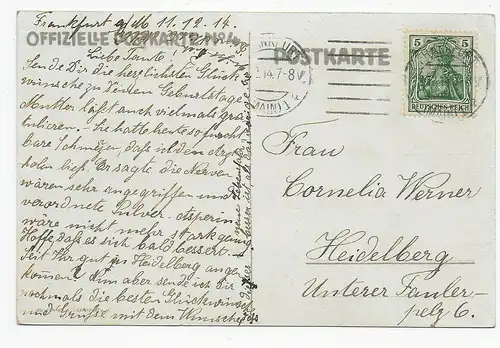 Frankfurt a/M 11.12.14.
OFFIZIELLE POSTKARTE No 4
Liebe Tante!
Sende Dir die herzlichsten Glück
wünsche zu deinem Geburtstage
Mutter läßt auch vielmals gra
tulieren. Sie hatte heute so furcht
bare Schmerzen, daß ich den Arzt
holen ließ. Er sagte, die Nerven
wären sehr angegriffen und
verordnete Pulver. Asperin
wäre nicht mehr stark genug
Hoffe, daß es sich bald bessert.
Seit Ihr gut in Heidelberg ange
kommen? Nun aber sende ich dir
nochmals die besten Glückwünsche
und Grüße mit dem Wunsche daß
POSTKARTE
14.7-8V
(MAIN) 1
5 5
DEUTSCHES REICH
Frau
Cornelia Werner
Heidelberg
Unterer Fauler-
pelz 6.